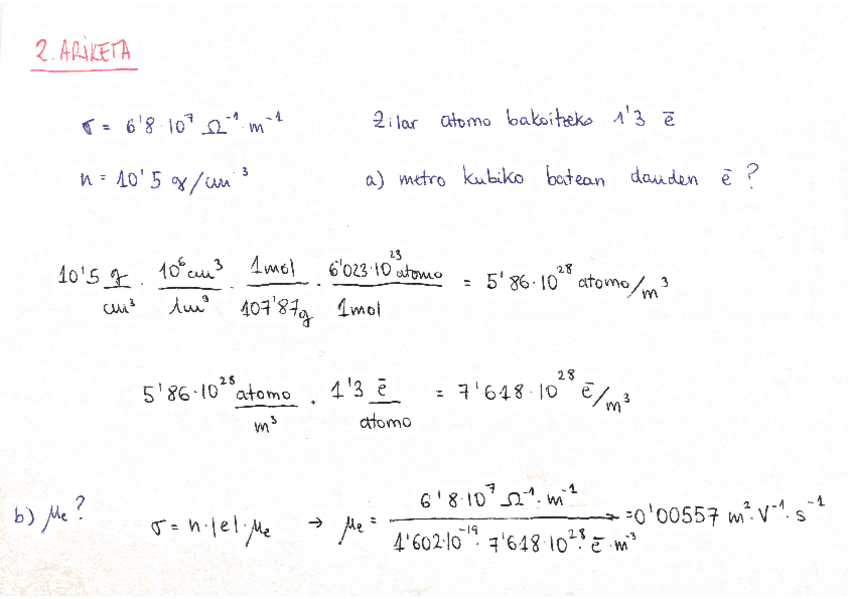 2. ARIKETA
σ = 6'8·10⁷ Ω⁻¹·m⁻¹ Zilar atomo bakoitzeko 1'3 ē
n = 10'5 g/cm³ a) metro kubiko batean dauden ē?
10'5 g/cm³ · 10⁶cm³/1m³ · 1mol/107'87g · 6'023·10²³ atomo/1mol = 5'86·10²⁸ atomo/m³
5'86·10²⁸ atomo/m³ · 1'3 ē/atomo = 7'618·10²⁸ ē/m³
b) μe? σ = n·|e|·μe → μe = 6'8·10⁷ Ω⁻¹·m⁻¹/1'602·10⁻¹⁹·7'618·10²⁸·ē·m⁻³ = 0'00557 m²·V⁻¹·s⁻¹